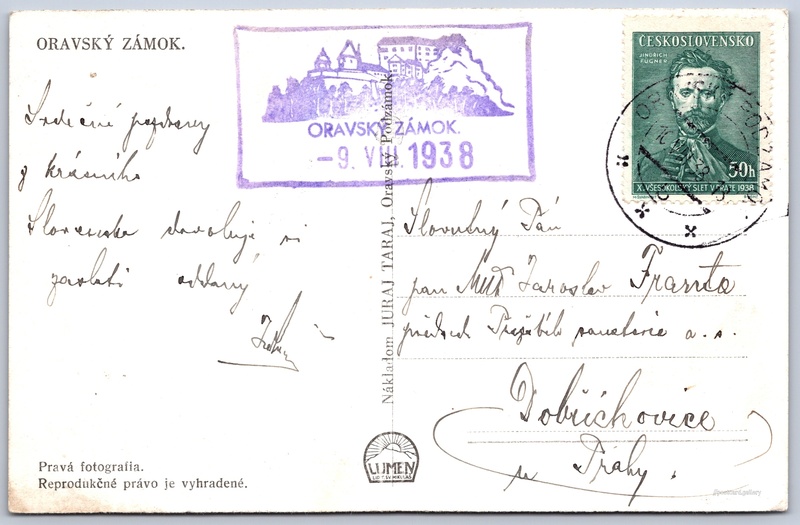 ORAVSKÝ ZÁMOK.
Srdečné pozdravy
z krásného
Slovenska dovoluje si
zaslati oddaný
ORAVSKÝ ZÁMOK.
-9. VIII. 1938
ČESKOSLOVENSKO
JINDŘICH
FÜGNER
50h
X. VŠESOKOLSKÝ SLET V PRAZE 1938
Slovutný Pán
pan MUDr Jaroslav Franta
Dobřichovice
u Prahy.
Nákladom JURAJ TARAJ, Oravský Podzámok.
LUMEN
LIPT. SV. MIKULÁŠ
Pravá fotografia.
Reprodukčné právo je vyhradené.